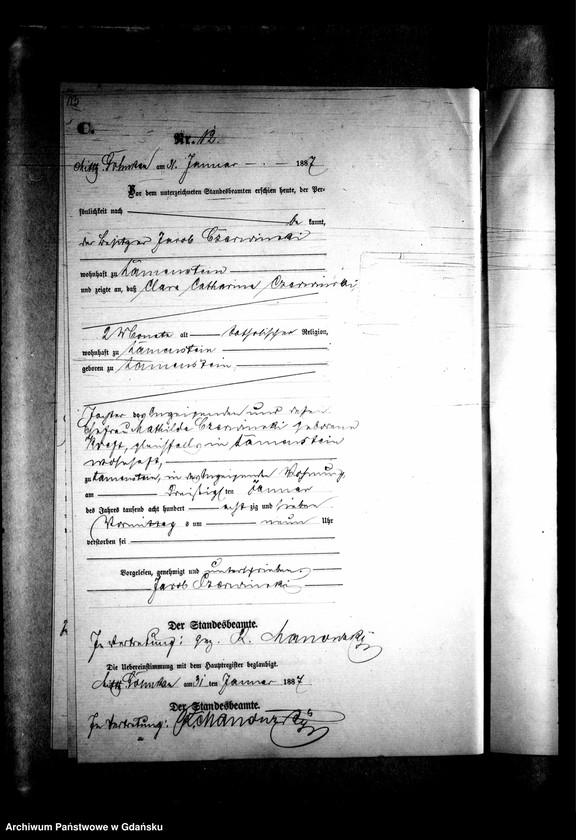 C.
Nr. 12.
am 31. Januar 1887
Vor dem unterzeichneten Standesbeamten erschien heute, der Per-
sönlichkeit nach
be kannt,
der Besitzer Jacob Czerwinski
wohnhaft zu Lamenstein
und zeigte an, daß Clara Catharina Czerwinski,
2 Monate alt katholischer Religion,
wohnhaft zu Lamenstein
geboren zu Lamenstein
Tochter des Anzeigenden und dessen
Ehefrau Mathilde Czerwinski geborene
gleichfalls in Lamenstein
wohnhaft,
zu Lamenstein, in des Anzeigenden Wohnung
am dreißigsten Januar
des Jahres tausend acht hundert acht zig und sieben
Vormittags um neun Uhr
verstorben sei
Vorgelesen, genehmigt und unterschrieben
Jacob Czerwinski
Der Standesbeamte.
In Vertretung: gez. K.
Die Uebereinstimmung mit dem Hauptregister beglaubigt.
am 31 ten Januar 1887
Der Standesbeamte.
In Vertretung:
Archiwum Państwowe w Gdańsku